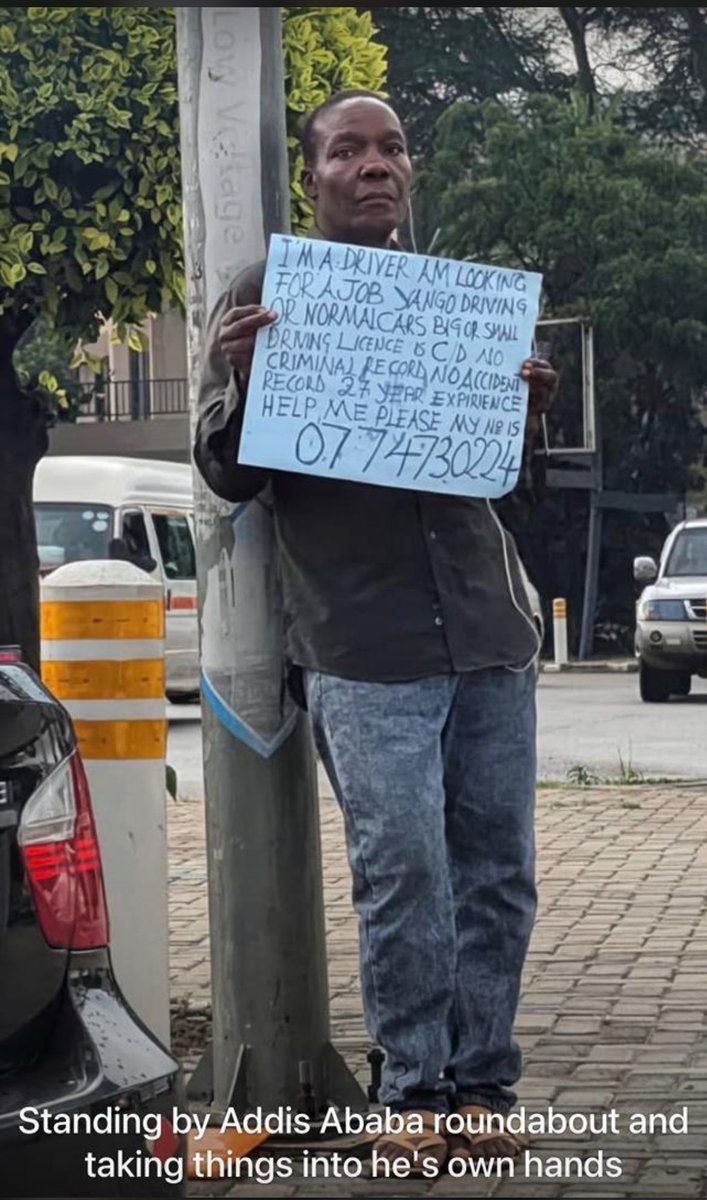 Low Voltage
I'M A DRIVER AM LOOKING
FOR A JOB YANGO DRIVING
OR NORMAL CARS BIG OR SMALL
DRIVING LICENCE IS C/D NO
CRIMINAL RECORD, NO ACCIDENT
RECORD 27 YEAR EXPIRIENCE
HELP ME PLEASE MY No IS
0774730224
Standing by Addis Ababa roundabout and
taking things into he's own hands